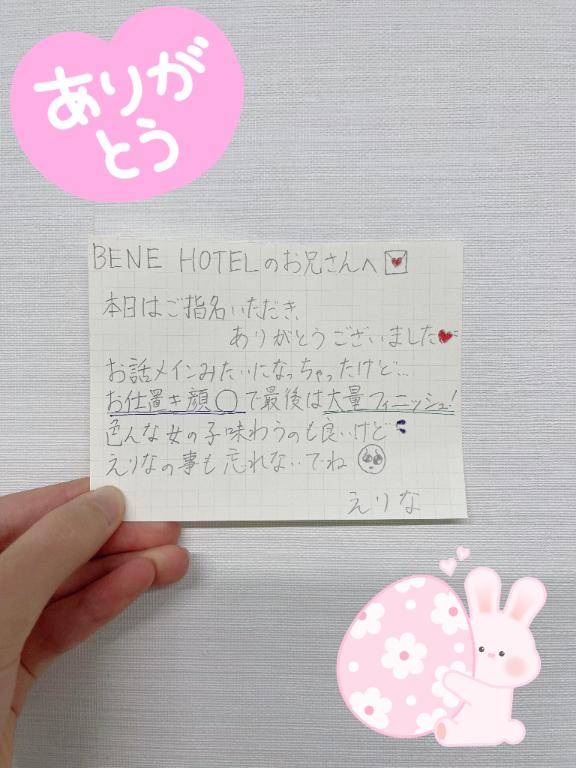 ありが
とう
BENE HOTELのお兄さんへ
本日はご指名いただき、
ありがとうございました
お話メインみたいになっちゃったけど…
お仕置き顔〇で最後は大量フィニッシュ!
色んな女の子味わうのも良いけど
えりなの事も忘れないでね
えりな